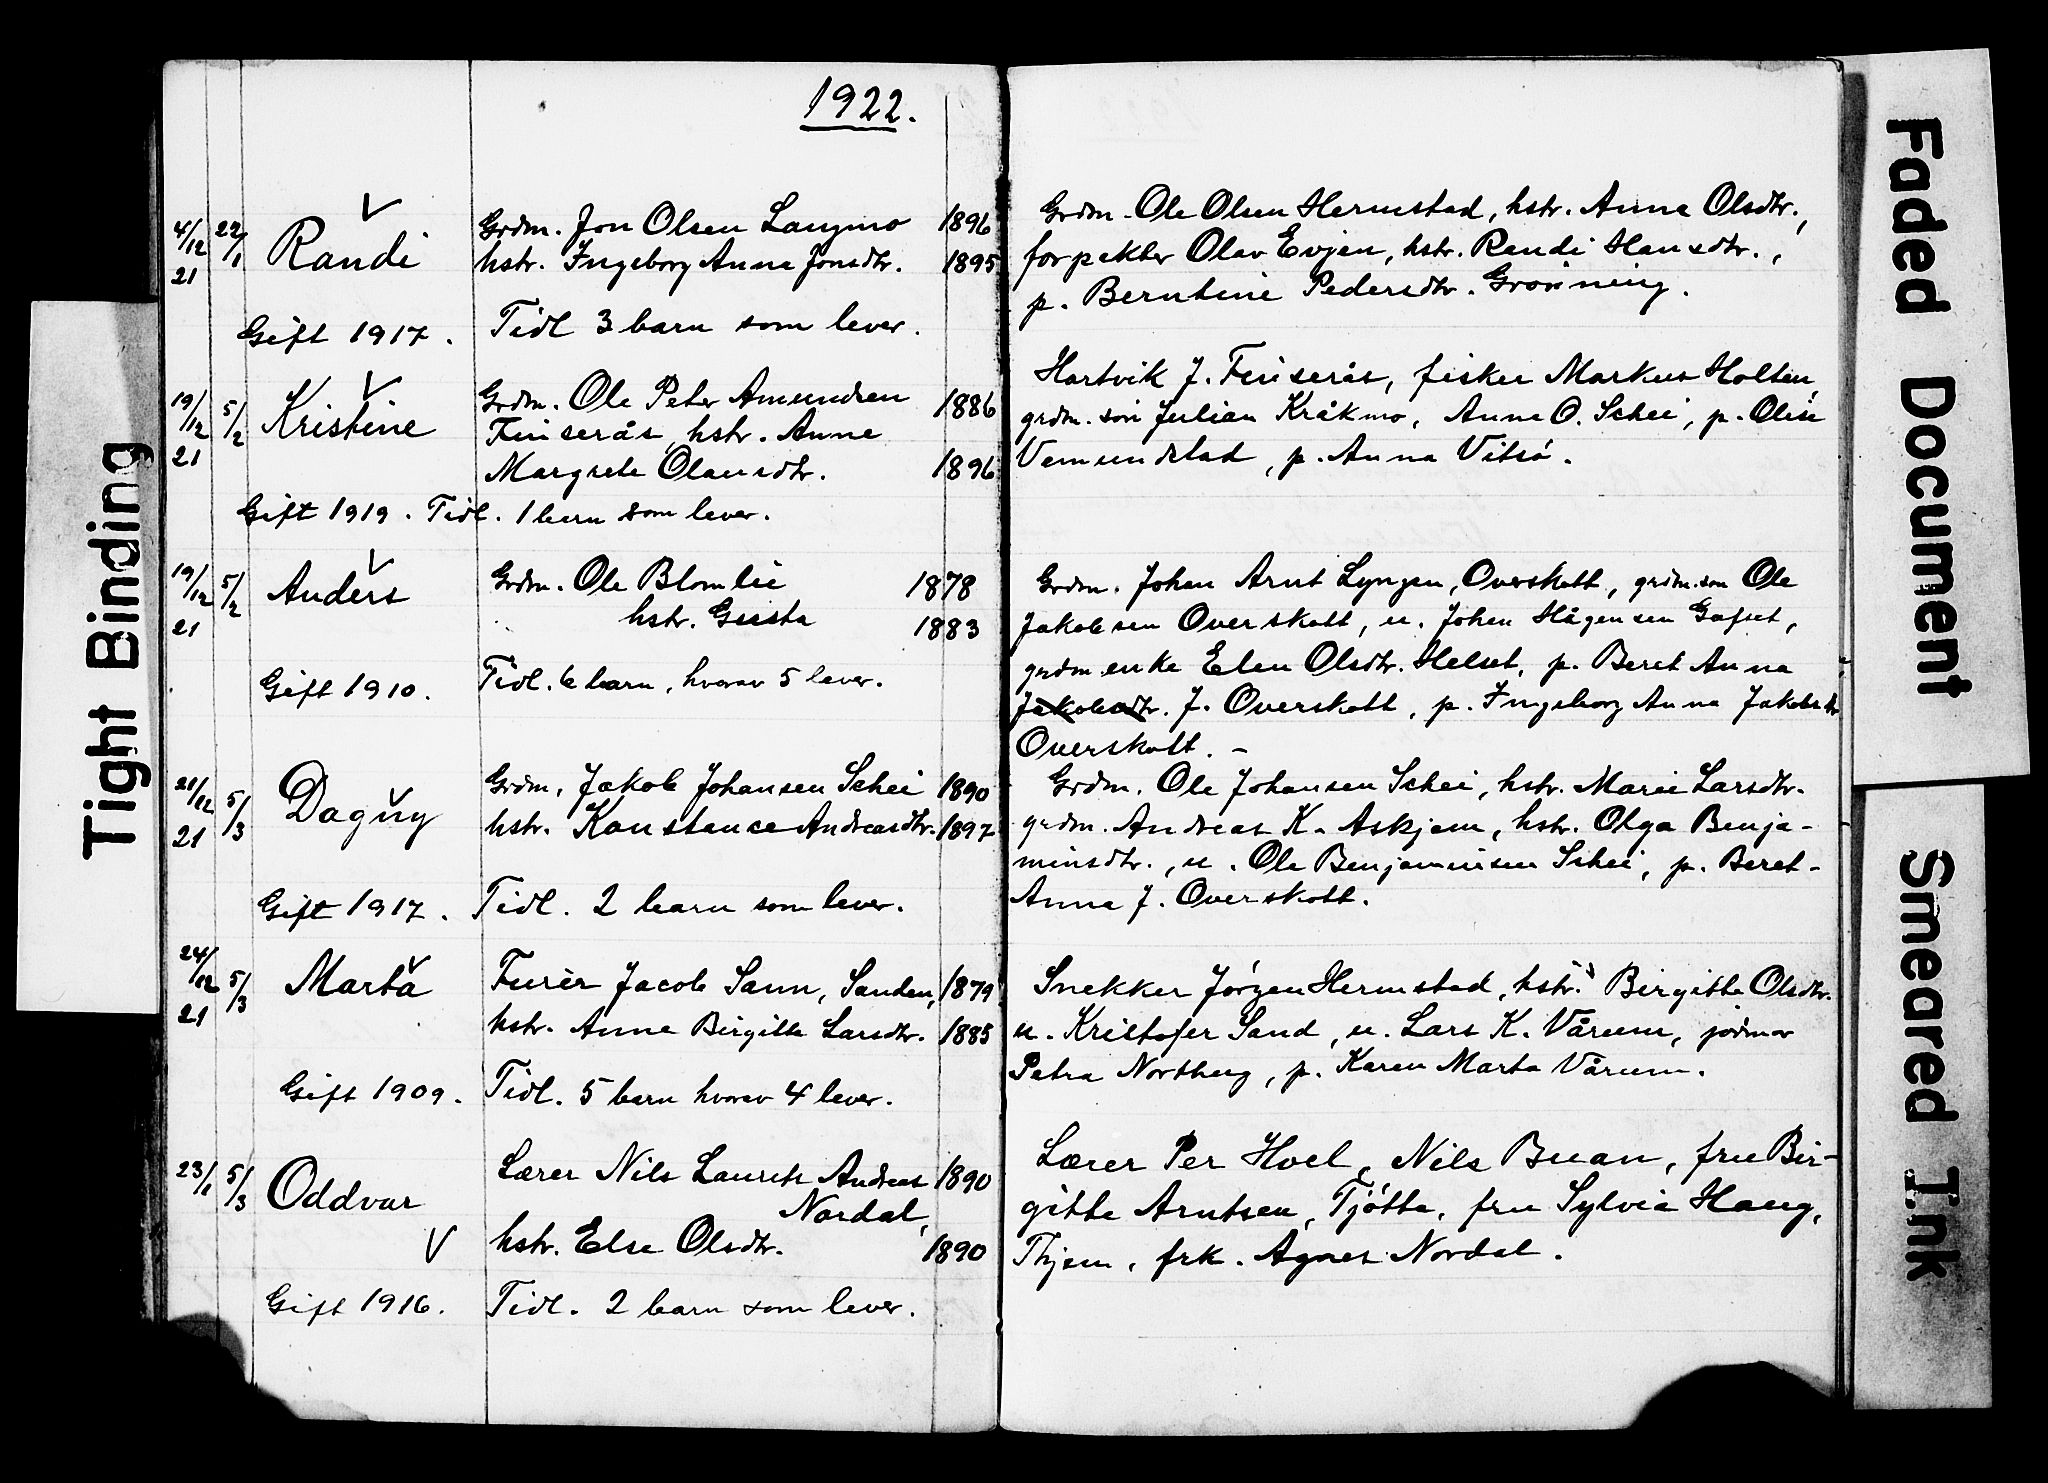 1922.
4/12 21
22/1
Randi
Grdm. Jon Olsen Langmo 1896
hstr. Ingeborg Anna Jonsdtr. 1895
Gift 1917. Tidl 3 barn som lever.
Grdm. Ole Olsen Hermstad, hstr. Anna Olsdtr.,
forpakter Olav Evjen, hstr. Randi Hansdtr.,
p. Berntine Pedersdtr. Grönning.
19/12 21
5/2
Kristine
Grdm. Ole Peter Amundsen 1886
Finserås, hstr. Anna
Margrete Olausdtr. 1896
Gift 1919. Tidl. 1 barn som lever.
Hartvik J. Finserås, fisker Markus Holten,
grdm. sön Julian Kråkmo, Anna O. Schei, p. Olise
Vemundstad, p. Anna Vitsö.
19/12 21
5/2
Anders
Grdm. Ole Blomlie 1878
hstr. Gusta 1883
Gift 1910. Tidl. 6 barn, hvorav 5 lever.
Grdm. Johan Arnt Lyngen, Overskott, grdm. sön Ole
Jakobsen Overskott, u. Johan Hågensen Gafset,
grdm. enke Elen Olsdtr. Helset, p. Beret Anna
Jakobsdtr. J. Overskott, p. Ingeborg Anna Jakobsdtr
Overskott. –
21/12 21
5/3
Dagny
Grdm. Jakob Johansen Schei 1890
hstr. Konstance Andreasdtr. 1897
Gift 1917. Tidl. 2 barn som lever.
Grdm. Ole Johansen Schei, hstr. Marie Larsdtr.
grdm. Andreas K. Askjem, hstr. Olga Benja-
minsdtr., u. Ole Benjaminsen Schei, p. Beret-
Anna J. Overskott.
24/12 21
5/3
Marta
Furér Jacob Sann, Sanden, 1879
hstr. Anna Birgitte Larsdtr. 1885
Gift 1909. Tidl. 5 barn hvorav 4 lever.
Snekker Jörgen Hermstad, hstr. Birgitte Olsdtr.
u. Kristofer Sand, u. Lars K. Vårum, jordmor
Petra Nortberg, p. Karen Marta Vårum.
23/1
5/3
Oddvar
Lærer Nils Laurits Andreas 1890
Nordal,
hstr. Else Olsdtr. 1890
Gift 1916. Tidl. 2 barn som lever.
Lærer Per Hoel, Nils Buan, fru Bir-
gitte Arntsen, Tjötta, fru Sylvia Haug,
frk. Agnes Nordal.
Tight Binding
Faded Document
Smeared Ink